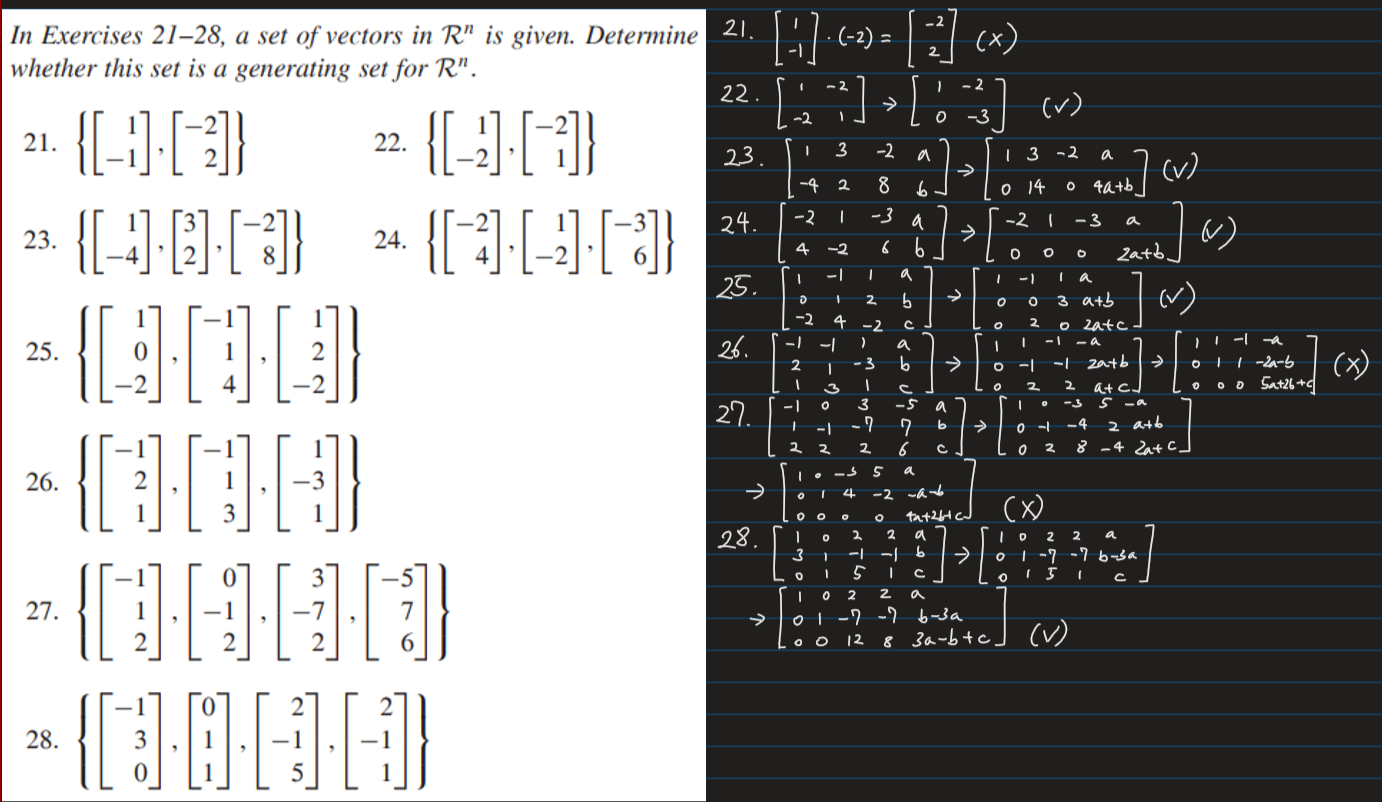 In Exercises 21–28, a set of vectors in Rⁿ is given. Determine
whether this set is a generating set for Rⁿ.
21. {[1; −1], [−2; 2]}
22. {[1; −2], [−2; 1]}
23. {[1; −4], [3; 2], [−2; 8]}
24. {[−2; 4], [1; −2], [−3; 6]}
25. {[1; 0; −2], [−1; 1; 4], [1; 2; −2]}
26. {[−1; 2; 1], [−1; 1; 3], [1; −3; 1]}
27. {[−1; 1; 2], [0; −1; 2], [3; −7; 2], [−5; 7; 6]}
28. {[−1; 3; 0], [0; 1; 1], [2; −1; 5], [2; −1; 1]}
21. [1; -1] · (-2) = [-2; 2] (×)
22. [1 -2; -2 1] → [1 -2; 0 -3] (√)
23. [1 3 -2 a; -4 2 8 b] → [1 3 -2 a; 0 14 0 4a+b] (√)
24. [-2 1 -3 a; 4 -2 6 b] → [-2 1 -3 a; 0 0 0 2a+b] (√)
25. [1 -1 1 a; 0 1 2 b; -2 4 -2 c] → [1 -1 1 a; 0 0 3 a+b; 0 2 0 2a+c] (√)
26. [-1 -1 1 a; 2 1 -3 b; 1 3 1 c] → [1 1 -1 -a; 0 -1 -1 2a+b; 0 2 2 a+c] → [1 1 -1 -a; 0 1 1 -2a-b; 0 0 0 5a+2b+c] (×)
27. [-1 0 3 -5 a; 1 -1 -7 7 b; 2 2 2 6 c] → [1 0 -3 5 -a; 0 -1 -4 2 a+b; 0 2 8 -4 2a+c]
→ [1 0 -3 5 a; 0 1 4 -2 -a-b; 0 0 0 0 4a+2b+c] (×)
28. [1 0 2 2 a; 3 1 -1 -1 b; 0 1 5 1 c] → [1 0 2 2 a; 0 1 -7 -7 b-3a; 0 1 5 1 c]
→ [1 0 2 2 a; 0 1 -7 -7 b-3a; 0 0 12 8 3a-b+c] (√)